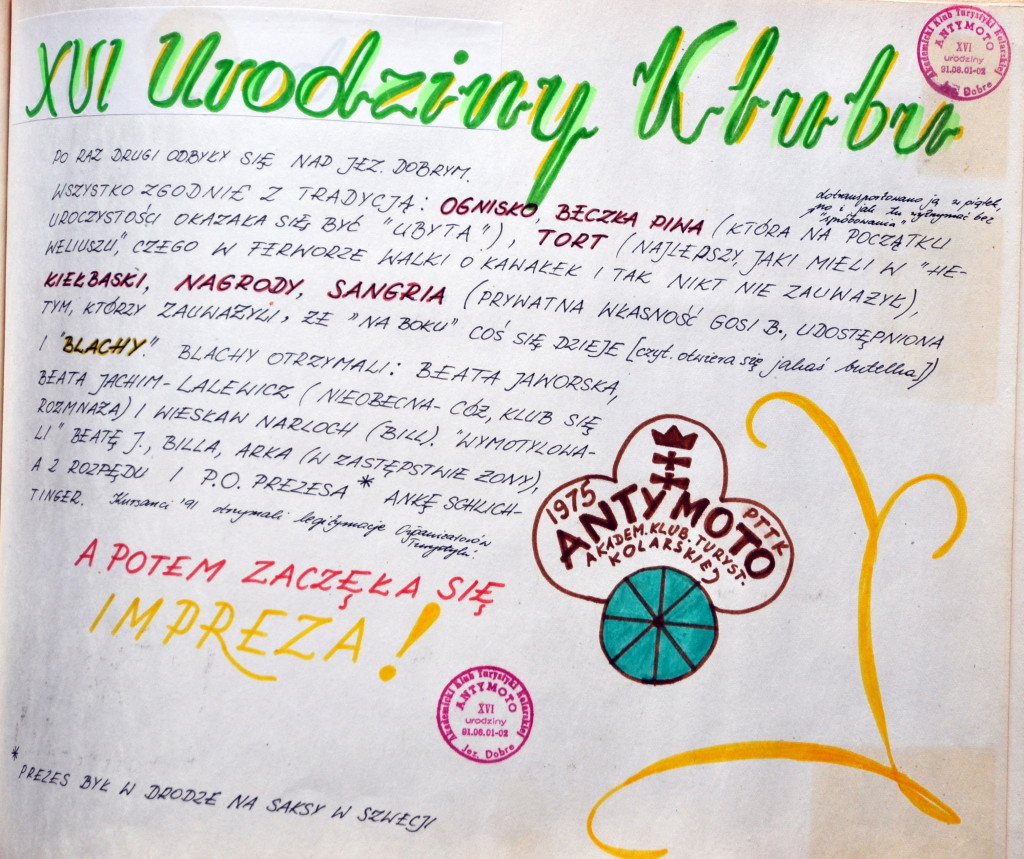 XVI Urodziny Klubu
Akademicki Klub Turystyki Kolarskiej
ANTYMOTO
XVI
urodziny
91.06.01-02
Jez. Dobre
PO RAZ DRUGI ODBYŁY SIĘ NAD JEZ. DOBRYM.
WSZYSTKO ZGODNIE Z TRADYCJĄ: OGNISKO, BECZKA PIWA (KTÓRA NA POCZĄTKU
dotransportowano ją w piątek,
no i jak tu wytrzymać bez
"spróbowania"
UROCZYSTOŚCI OKAZAŁA SIĘ BYĆ "UBYTA"), TORT (NAJLEPSZY, JAKI MIELI W "HE-
WELIUSZU", CZEGO W FERWORZE WALKI O KAWAŁEK I TAK NIKT NIE ZAUWAŻYŁ),
KIEŁBASKI, NAGRODY, SANGRIA (PRYWATNA WŁASNOŚĆ GOSI B., UDOSTĘPNIONA
TYM, KTÓRZY ZAUWAŻYLI, ŻE "NA BOKU" COŚ SIĘ DZIEJE [czyt. otwiera się jakaś butelka])
I "BLACHY". BLACHY OTRZYMALI: BEATA JAWORSKA,
BEATA JACHIM-LALEWICZ (NIEOBECNA - CÓŻ, KLUB SIĘ
ROZMNAŻA) I WIESŁAW NARLOCH (BILL). "WYMOTYLOWA-
LI" BEATĘ J., BILLA, ARKA (W ZASTĘPSTWIE ŻONY),
A Z ROZPĘDU I P.O. PREZESA * ANKĘ SCHLICH-
TINGER. Kursanci '91 otrzymali legitymacje Organizatorów
Turystyki.
A POTEM ZACZĘŁA SIĘ
IMPREZA!
1975
ANTYMOTO
PTTK
AKADEM. KLUB. TURYST.
KOLARSKIEJ
Akademicki Klub Turystyki Kolarskiej
ANTYMOTO
XVI
urodziny
91.06.01-02
Jez. Dobre
* PREZES BYŁ W DRODZE NA SAKSY W SZWECJI